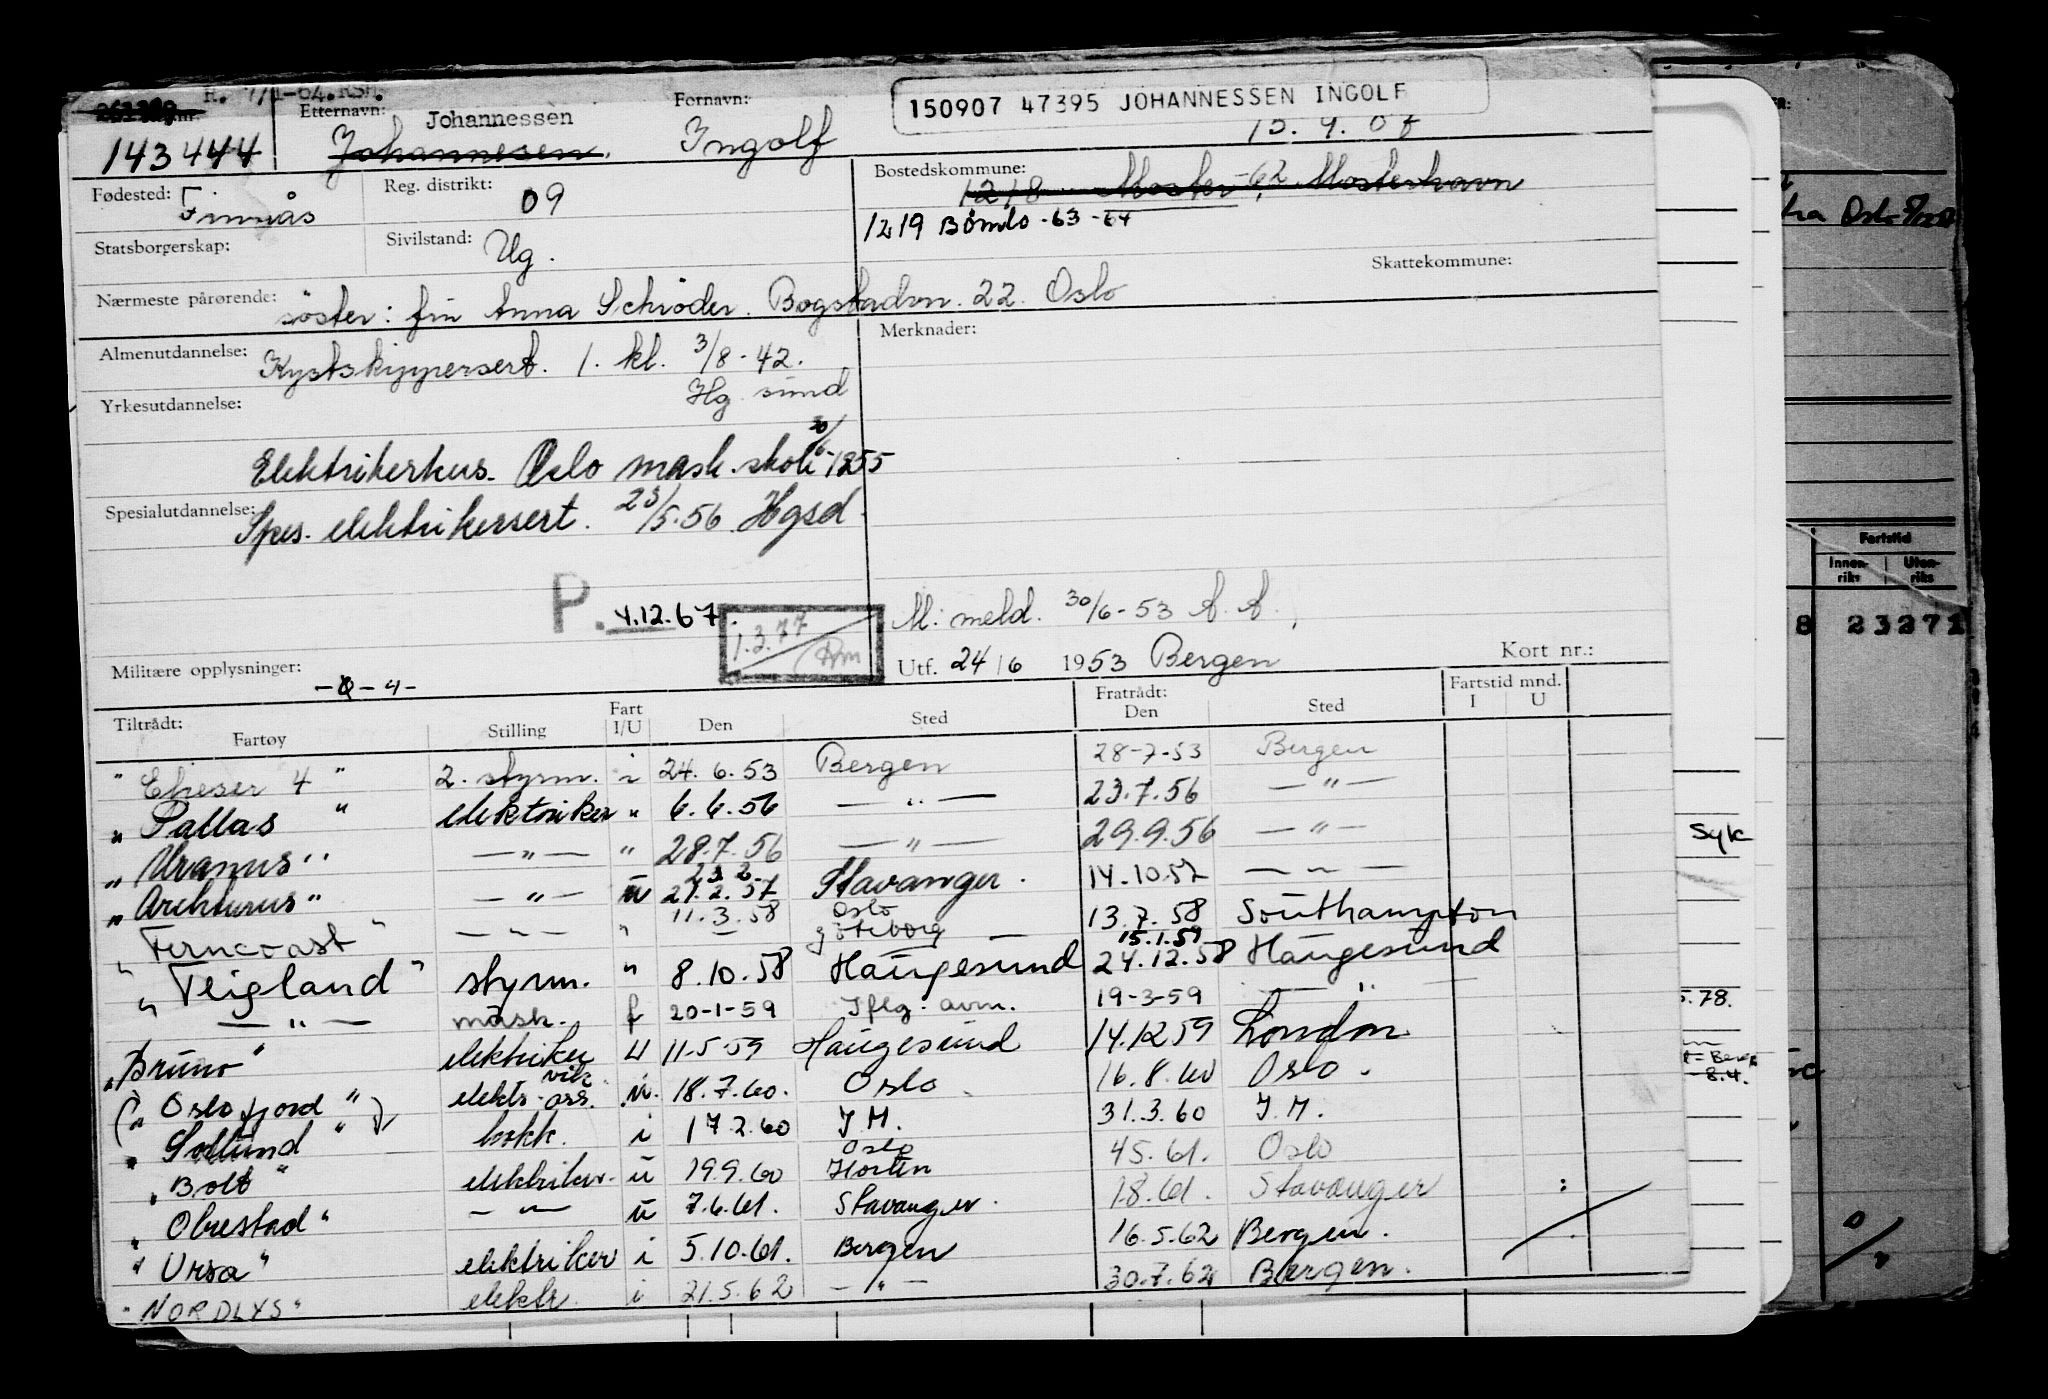 H. 7/1-64. RSH.
Etternavn: Johannessen Fornavn: 150907 47395 JOHANNESSEN INGOLF
143444 Johannesen. Ingolf 15.9.07
Fødested: Finnås Reg. distrikt: 09 Bostedskommune: 1218 Moster -62, Mosterhavn
1219 Bömlo -63 -64
Statsborgerskap: Sivilstand: Ug.
Skattekommune:
Nærmeste pårørende: söster: fru Anna Schröder. Bogstadvn. 22. Oslo
Almenutdannelse: Kystskippersert. 1. kl. 3/8-42. Merknader:
Hg. sund
Yrkesutdannelse:
Elektrikerkurs. Oslo mask. skole 1955
Spesialutdannelse: Spes. elektrikersert. 23/5.56 Hgsd.
P. 4.12.67. 1.3.77 M: meld. 30/6-53 A. A.
Militære opplysninger: Utf. 24/6 1953 Bergen Kort nr.:
Tiltrådt: Fartøy Stilling Fart I/U Den Sted Fratrådt: Den Sted Fartstid mnd. I U
" Elieser 4 " 2. styrm. i 24.6.53 Bergen 28-7-53 Bergen
" Pallas " elektriker " 6.6.56 — " — 23.7.56 — " —
" Uranus " — " — " 28.7.56 — " — 29.9.56 — " —
23 2.
" Arckturus " — " — u 27.2.57 Stavanger. 14.10.57 — " —
11.3.58 Oslo
" Ferncoast " — " — " — göteborg — 13.7.58 Southampton
15.1.59
" Teigland " styrm. " 8.10.58 Haugesund 24.12.58 Haugesund
— " — mask. f 20-1-59 Iflg. avm. 19-3-59 — " —
" Bruno " elektriker u 11-5-59 Haugesund 14.12 59 London
(" Oslofjord ") elektr. vik. ass. u. 18.7.60. Oslo 16.8.60 Oslo.
" Solund " kokk. i 17.2.60 I M. 31.3.60 I. M.
Oslo
" Bolt " elektriker. u 19.9.60 Horten 4 5.61. Oslo
" Obrestad " — " — u 7.6.61. Stavanger. 1.8.61. Stavanger
" Ursa " elektriker i 5.10.61. Bergen 16.5.62 Bergen.
" NORDLYS " elektr. i 21.5.62 — " — 30.7.62 Bergen.
Oslo
Fartstid
Innen-riks Uten-riks
8 23271
Syk
5.78.
8.4.